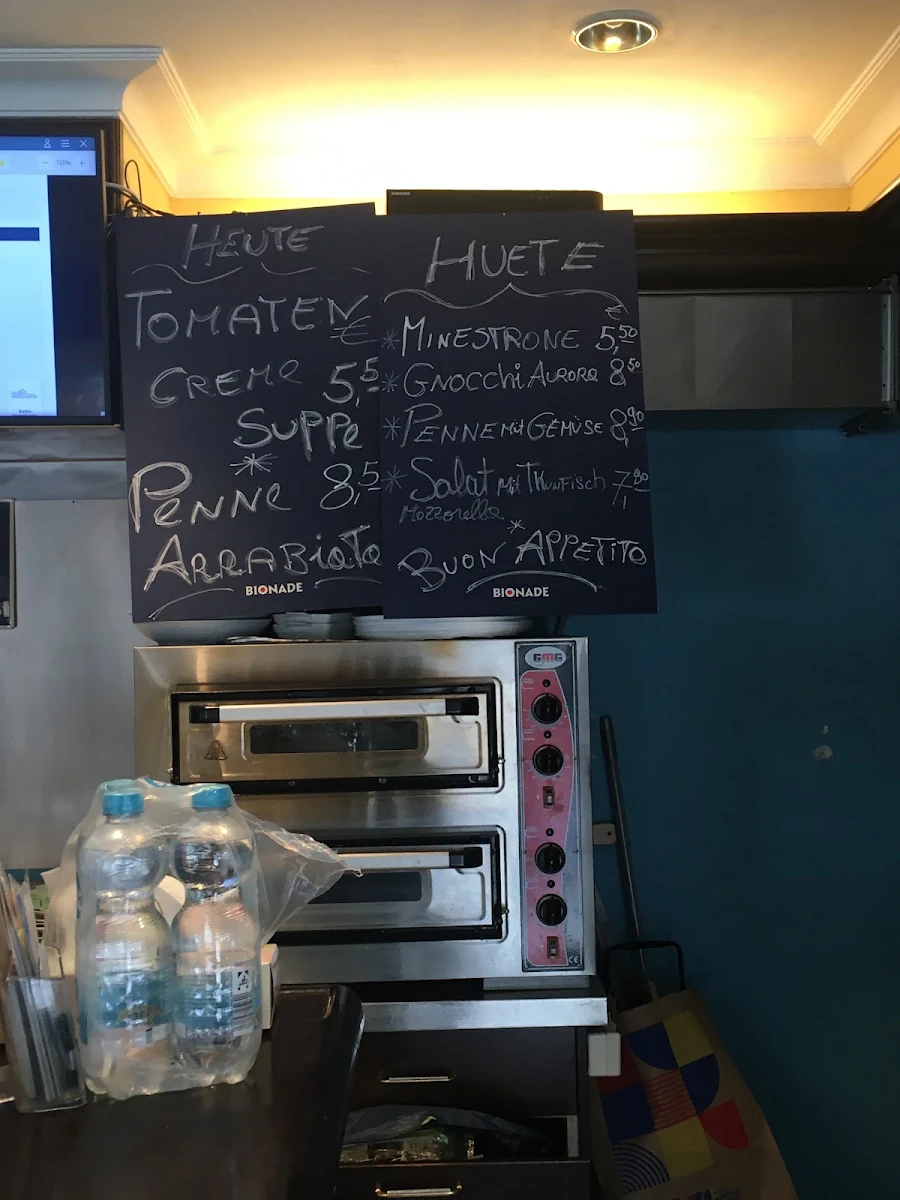 HEUTE
TOMATEN
€
CREME 5,5
SUPPE
*
PENNE 8,5
ARRABIATA
BIONADE
HUETE
€
* MINESTRONE 5,50
* GNOCCHI AURORA 8,50
* PENNE MIT GEMÜSE 8,90
* Salat MIT THUNFISCH 7,90
Mozzorella
*
BUON APPETITO
BIONADE
SAMSUNG
125%
GMG
CE